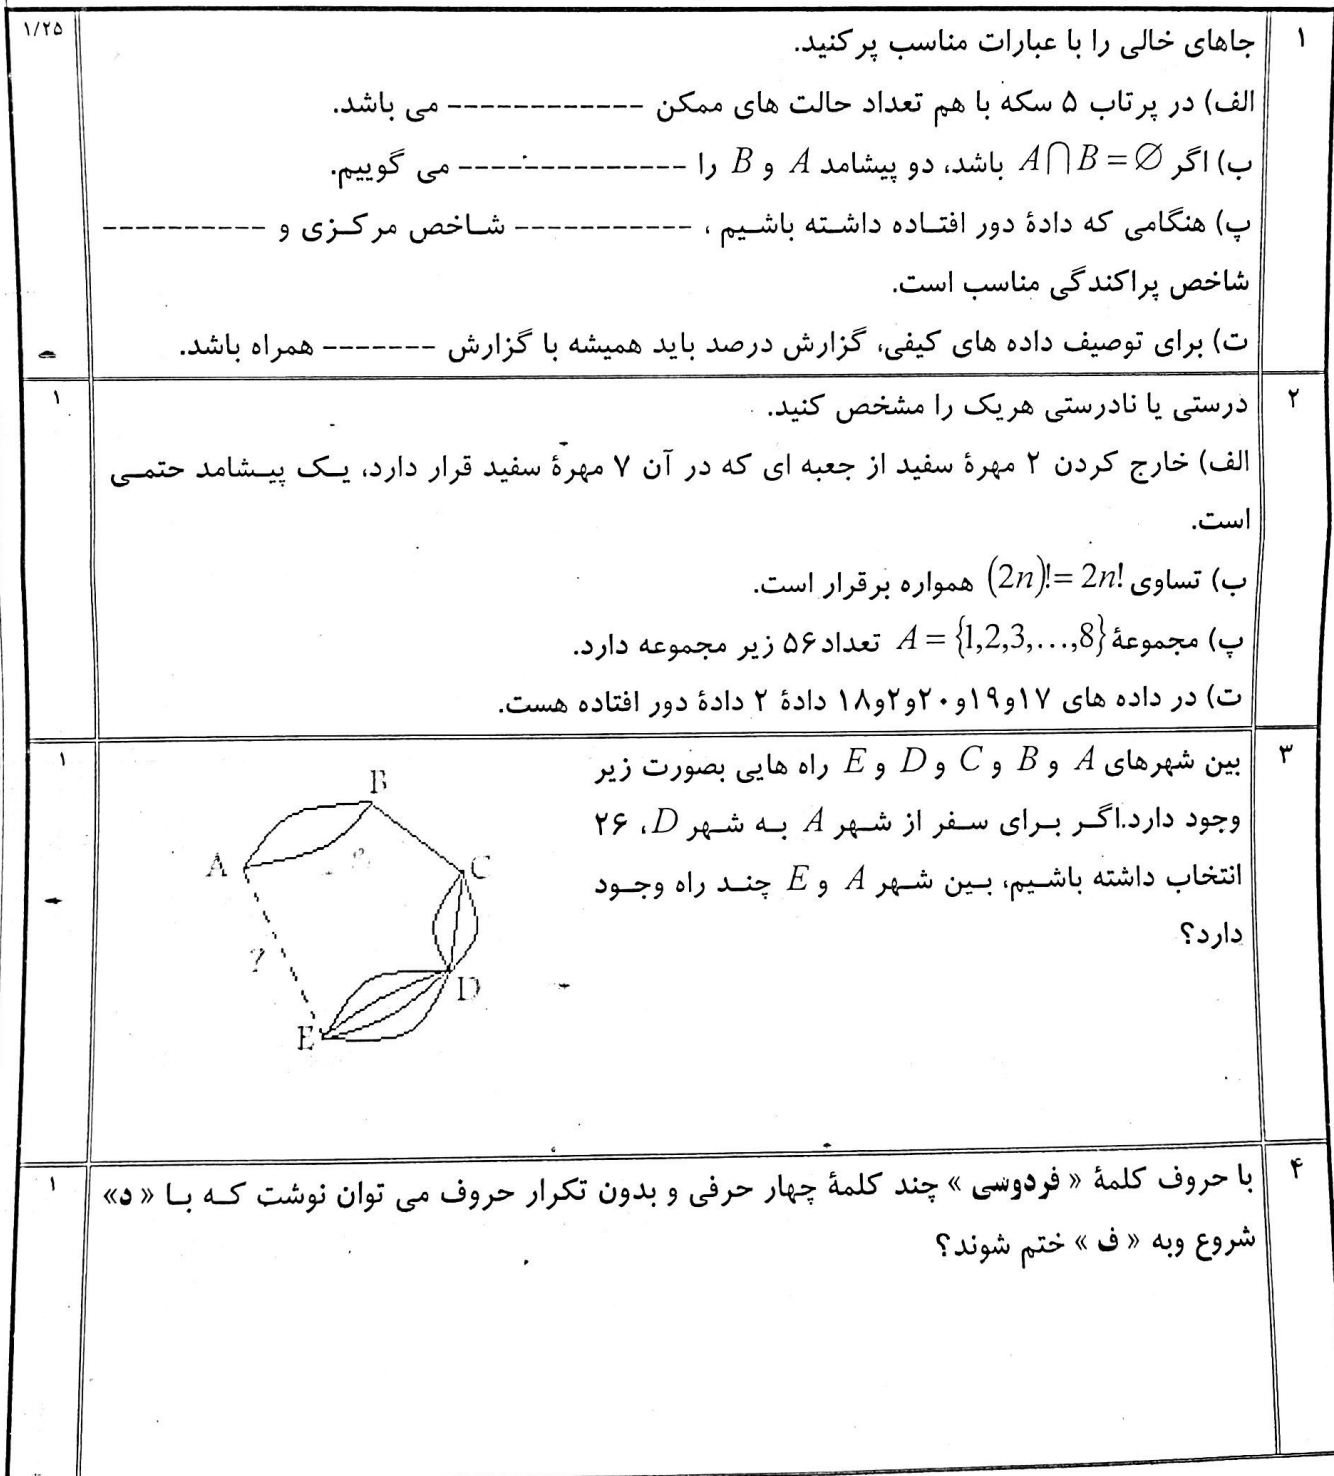 ۱
۱/۲۵
جاهای خالی را با عبارات مناسب پرکنید.
الف) در پرتاب ۵ سکه با هم تعداد حالت های ممکن ------------ می باشد.
ب) اگر A∩B=∅ باشد، دو پیشامد A و B را -------------- می گوییم.
پ) هنگامی که دادهٔ دور افتاده داشته باشیم ، ----------- شاخص مرکزی و ----------
شاخص پراکندگی مناسب است.
ت) برای توصیف داده های کیفی، گزارش درصد باید همیشه با گزارش ------- همراه باشد.
۲
۱
درستی یا نادرستی هریک را مشخص کنید.
الف) خارج کردن ۲ مهرهٔ سفید از جعبه ای که در آن ۷ مهرهٔ سفید قرار دارد، یک پیشامد حتمی
است.
ب) تساوی (2n)!=2n! همواره برقرار است.
پ) مجموعهٔ A={1,2,3,...,8} تعداد۵۶ زیر مجموعه دارد.
ت) در داده های ۱۷و۱۹و۲۰و۲و۱۸ دادهٔ ۲ دادهٔ دور افتاده هست.
۳
۱
بین شهرهای A و B و C و D و E راه هایی بصورت زیر
وجود دارد.اگر برای سفر از شهر A به شهر D، ۲۶
انتخاب داشته باشیم، بین شهر A و E چند راه وجود
دارد؟
B
A
C
?
D
E
۴
۱
با حروف کلمهٔ « فردوسی » چند کلمهٔ چهار حرفی و بدون تکرار حروف می توان نوشت که با « د»
شروع وبه « ف » ختم شوند؟